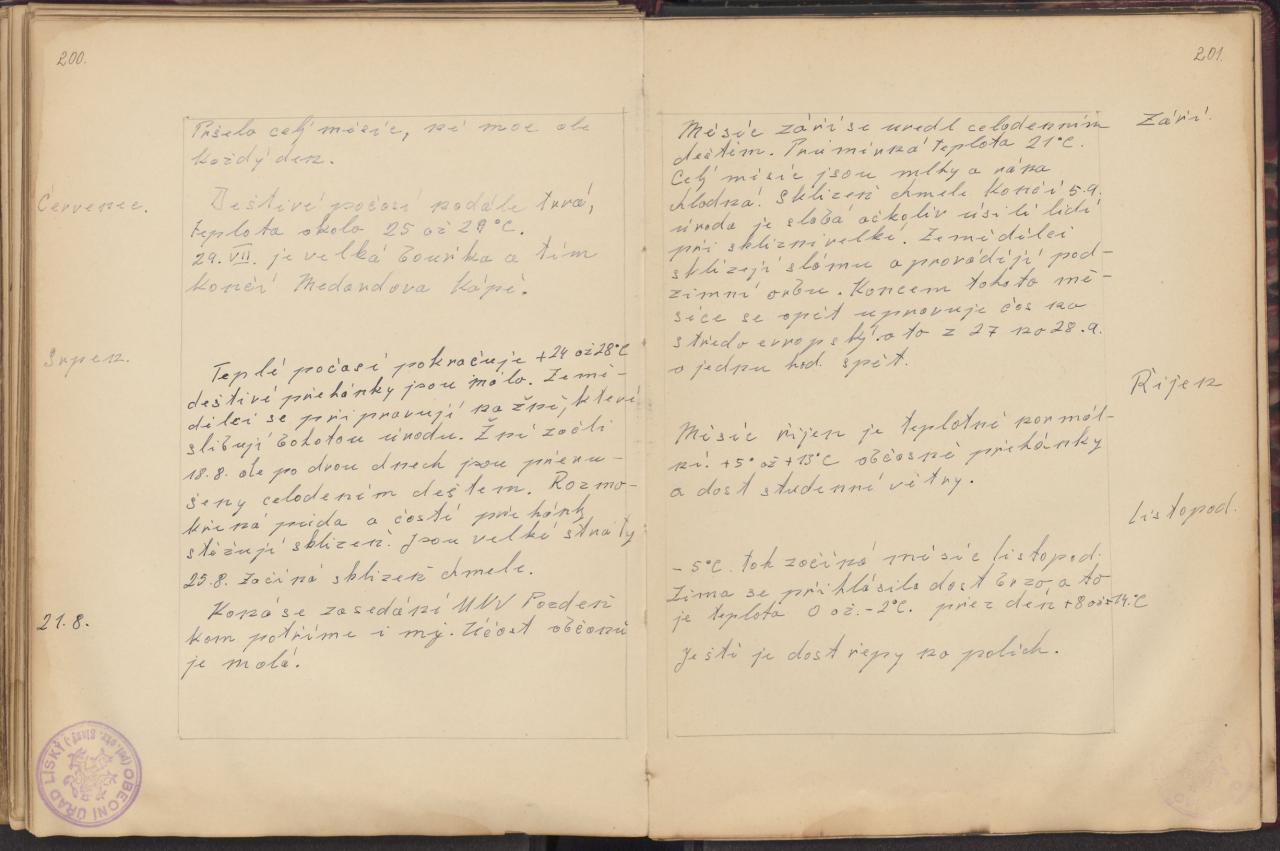 200.
Pršelo celý měsíc, né moc ale
každý den.
Červenec.
Deštivé počasí nadále trvá,
teplota okolo 25 až 29°C.
29. VII. je velká bouřka a tím
končí Medardova kápě.
Srpen.
Teplé počasí pokračuje +24 až 28°C
deštivé přehánky jsou málo. Země-
dělci se připravují na žně, které
slibují bohatou úrodu. Žně začli
18.8. ale po dvou dnech jsou přeru-
šeny celodením deštem. Rozmo-
křená půda a časté přehánky
stěžují sklizeň. Jsou velké ztráty
25.8. začíná sklizeň chmele.
21.8.
Koná se zasedání MNV Pozdeň
kam patříme i my. Účast občanů
je malá.
OBECNÍ ÚŘAD LÍSKÝ (pol. okr. Slaný)
201.
Září.
Měsíc září se uvedl celodenním
deštěm. Průměrná teplota 21°C.
Celý měsíc jsou mlhy a rána
chladná. Sklizeň chmele končí 5.9.
úroda je slabá ačkoliv úsilí lidí
při sklizni velké. Zemědělci
sklízejí slámu a provádějí pod-
zimní orbu. Koncem tohoto mě-
síce se opět upravuje čas na
středo evropský. a to z 27 na 28.9.
o jednu hod. spět.
Říjen
Měsíc říjen je teplotně normál-
ní. +5° až +13°C občasné přehánky
a dost studenné větry.
Listopad.
- 5°C. tak začíná měsíc listopad.
Zima se přihlásila dost brzo, a to
je teplota 0 až -2°C. přez den +8 až 14.°C
Ještě je dost řepy na polích.